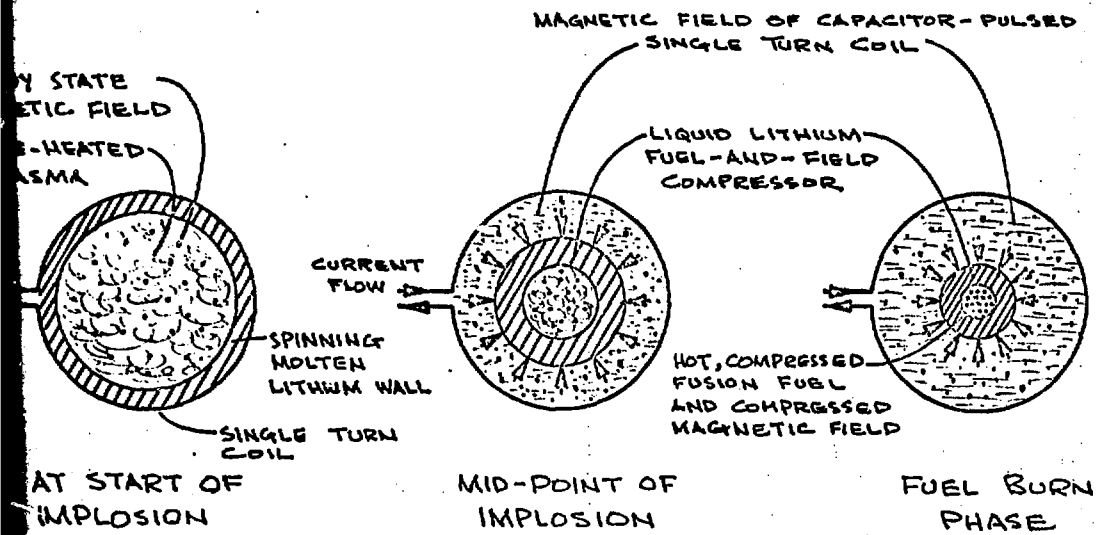 MAGNETIC FIELD OF CAPACITOR-PULSED
SINGLE TURN COIL
Y STATE
ETIC FIELD
E-HEATED
ASMA
LIQUID LITHIUM
FUEL-AND-FIELD
COMPRESSOR
CURRENT
FLOW
SPINNING
MOLTEN
LITHIUM WALL
SINGLE TURN
COIL
HOT, COMPRESSED
FUSION FUEL
AND COMPRESSED
MAGNETIC FIELD
AT START OF
IMPLOSION
MID-POINT OF
IMPLOSION
FUEL BURN
PHASE